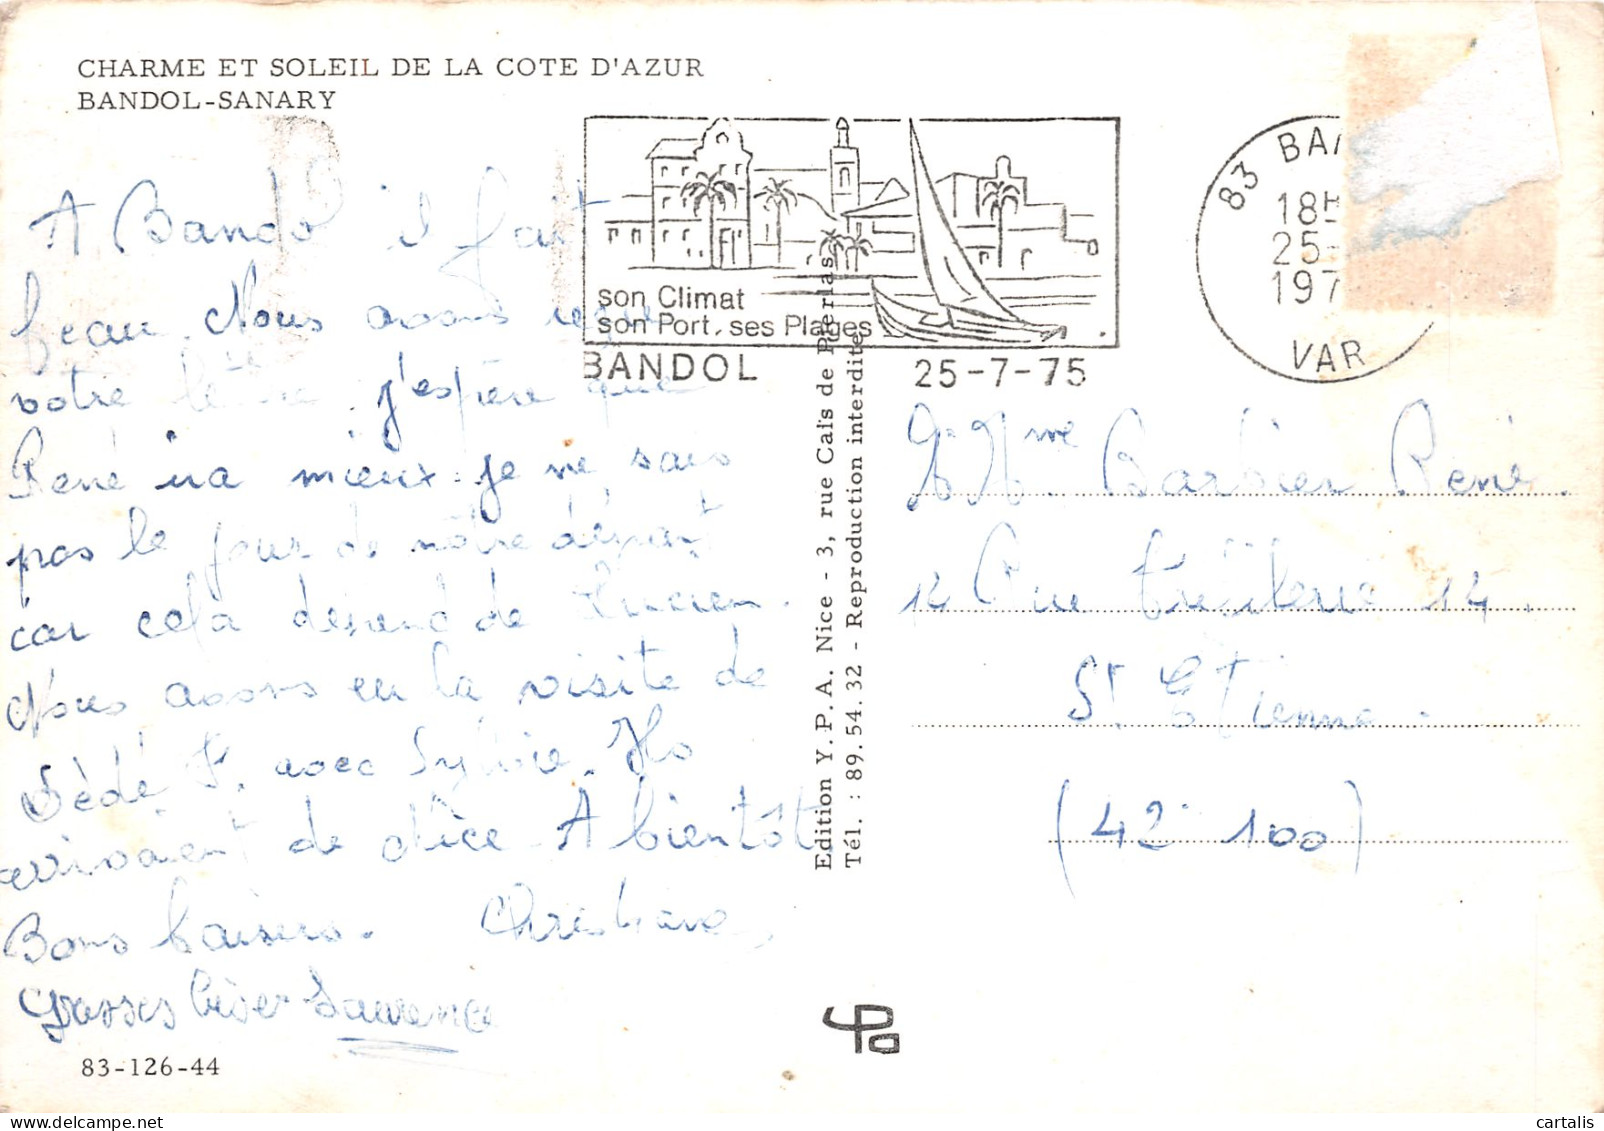 CHARME ET SOLEIL DE LA COTE D'AZUR
BANDOL-SANARY
A Bandol il fait
beau. Nous avons reçu
votre lettre. j'espère que
René ira mieux. je ne sais
pas le jour de nôtre départ
car cela dépend de Lucien.
Nous avons eu la visite de
Dédé F. avec Sylvie. Ils
arrivaient de Nice. A bientôt
Bons baisers. Christiane
grosses biser Laurence
83-126-44
son Climat
son Port, ses Plages
BANDOL 25-7-75
83 BAN
18H
25-
197
VAR
Edition Y. P. A. Nice - 3, rue Caïs de Pierlas
Tél. : 89.54.32 - Reproduction interdite
M. Mme Barbier René.
14 Rue 14.
St Etienne.
(42 100)
YPa
cartalis